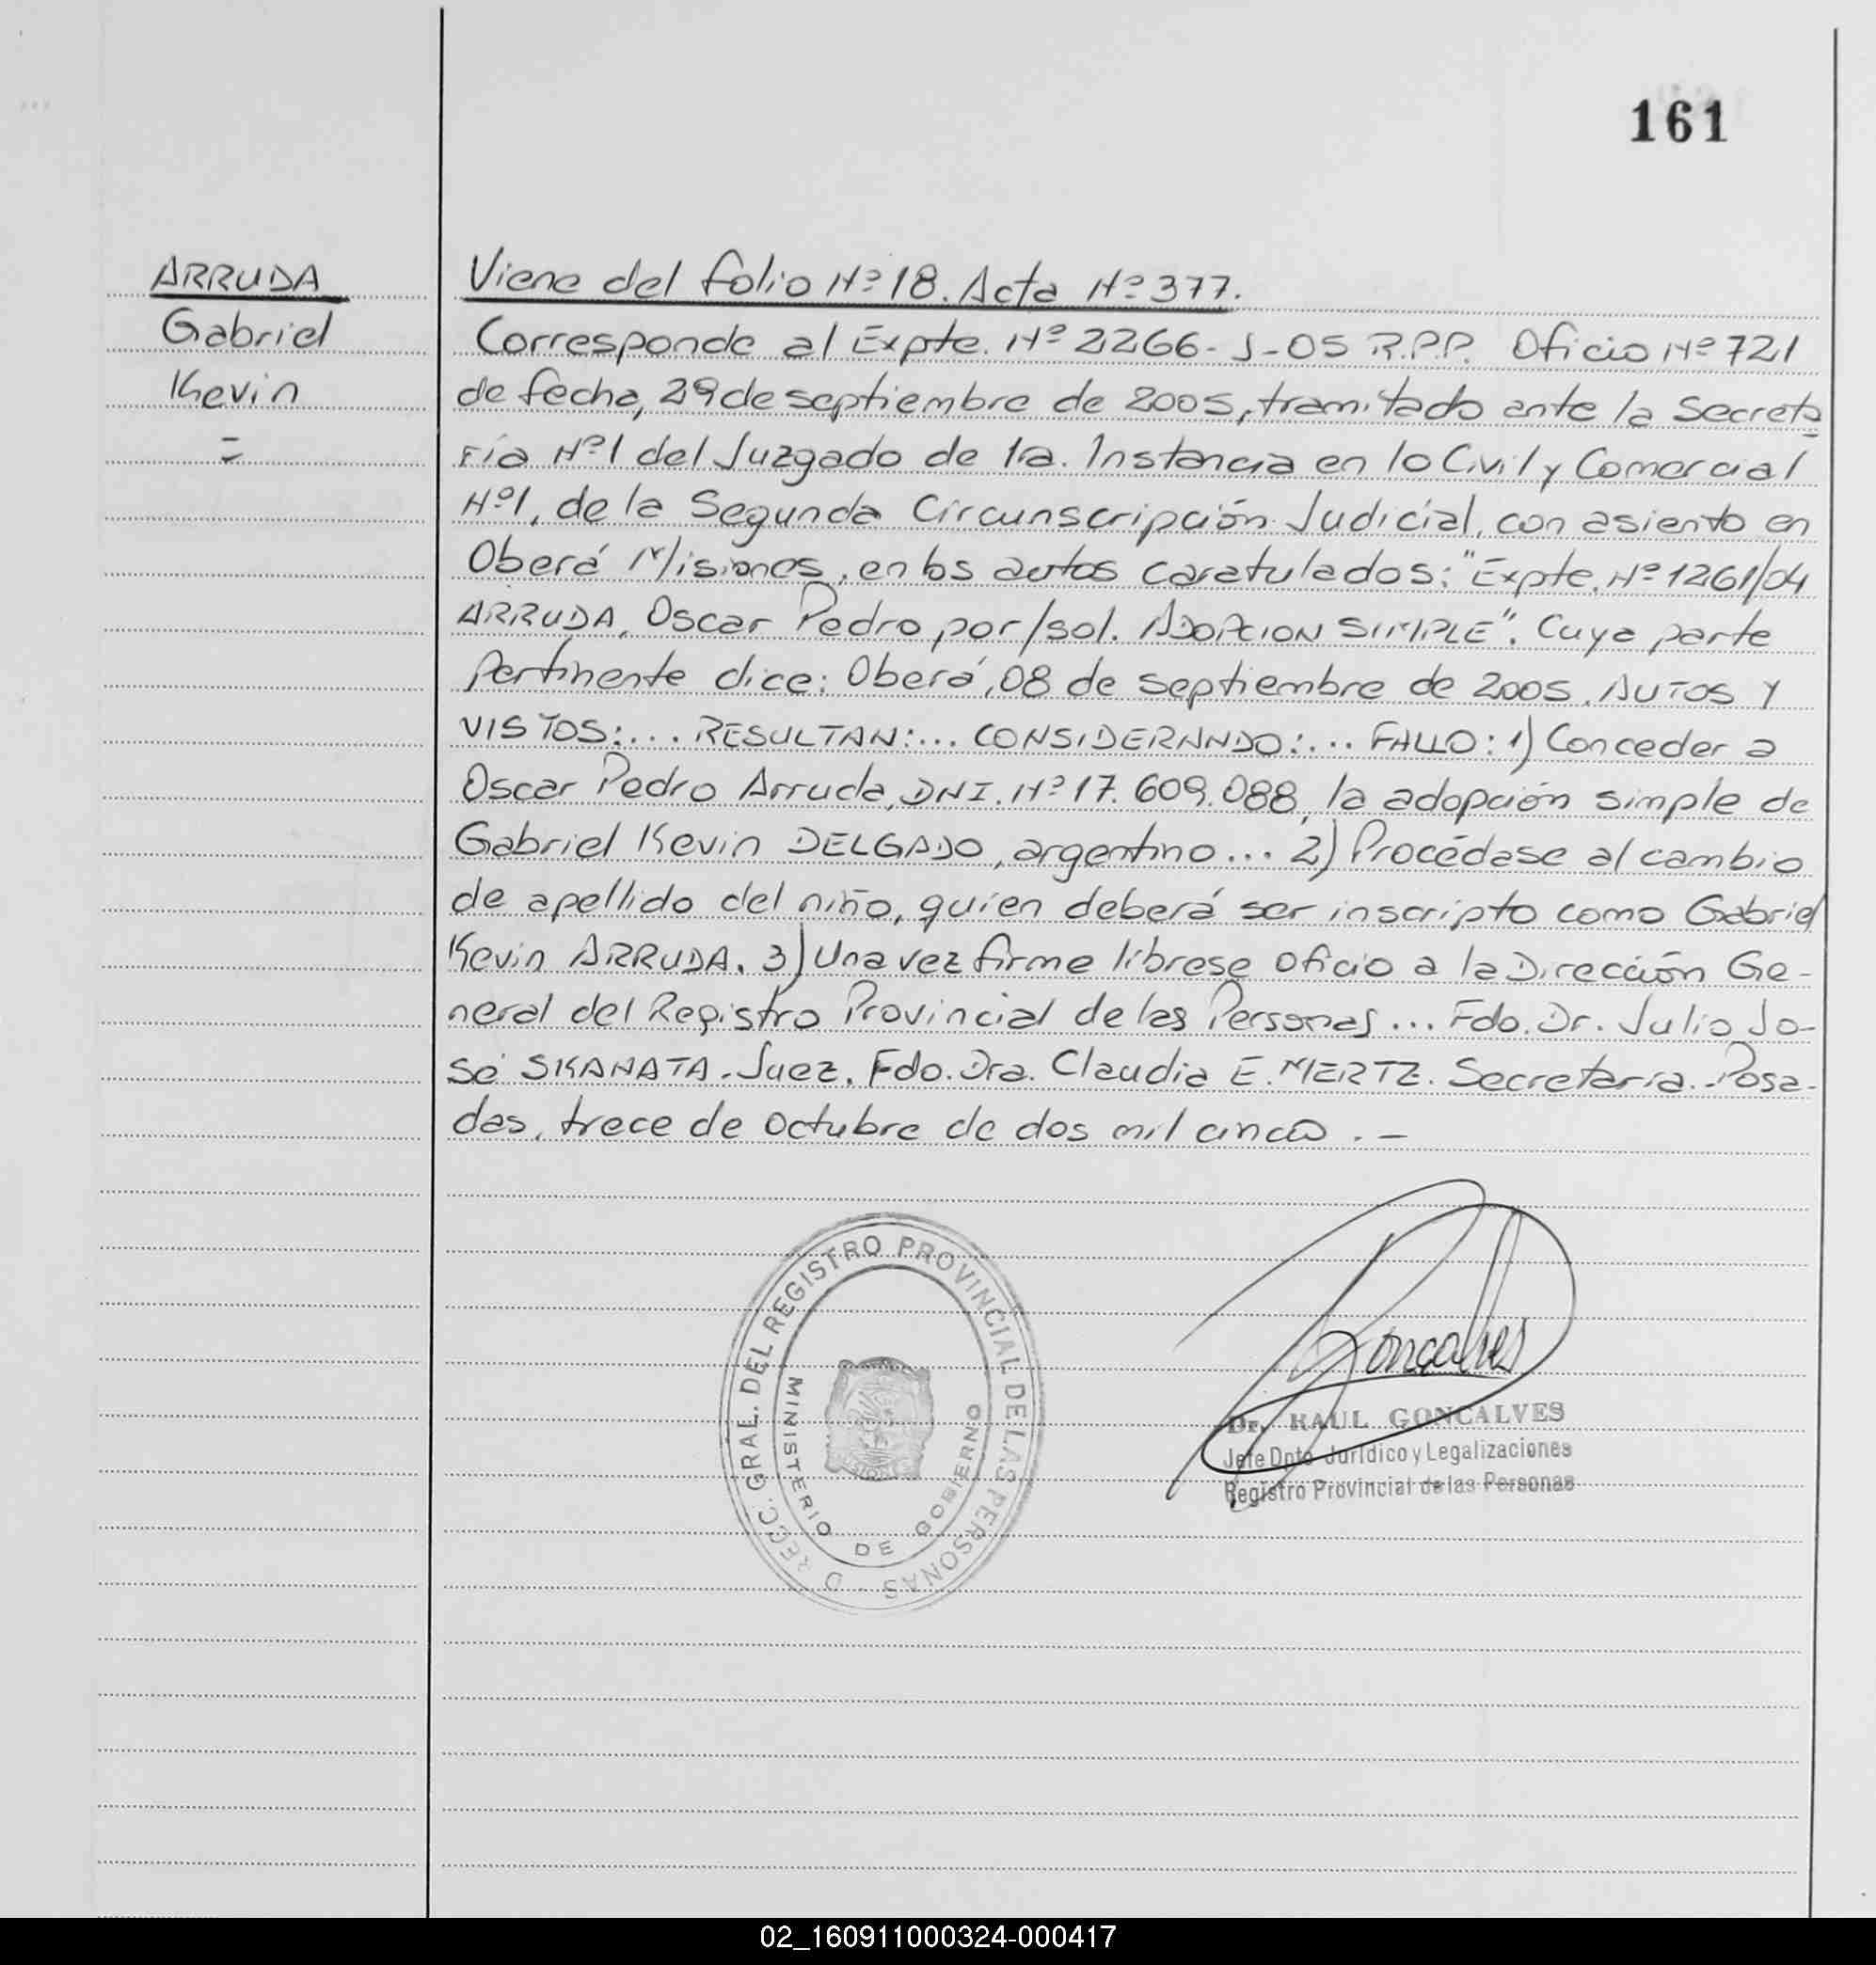 161
ARRUDA
Gabriel
Kevin
=
Viene del folio Nº 18. Acta Nº 377.
Corresponde al Expte. Nº 2266-J-05 R.P.P. Oficio Nº 721
de fecha, 29 de septiembre de 2005, tramitado ante la Secreta
ría Nº 1 del Juzgado de 1ra. Instancia en lo Civil y Comercial
Nº 1, de la Segunda Circunscripción Judicial, con asiento en
Oberá Misiones, en los autos caratulados: "Expte. Nº 1261/04
ARRUDA, Oscar Pedro por/sol. ADOPCION SIMPLE". Cuya parte
Pertinente dice: Oberá, 08 de septiembre de 2005. AUTOS Y
VISTOS:... RESULTAN:... CONSIDERANDO:... FALLO: 1) Conceder a
Oscar Pedro Arruda, DNI. Nº 17.609.088, la adopción simple de
Gabriel Kevin DELGADO, argentino... 2) Procédase al cambio
de apellido del niño, quien deberá ser inscripto como Gabriel
Kevin ARRUDA. 3) Una vez firme líbrese oficio a la Dirección Ge-
neral del Registro Provincial de las Personas... Fdo. Dr. Julio Jo-
sé SKANATA. Juez. Fdo. Dra. Claudia E. MERTZ. Secretaria. Posa-
das, trece de Octubre de dos mil cinco.-
D RECC. GRAL. DEL REGISTRO PROVINCIAL DE LAS PERSONAS
MINISTERIO DE GOBIERNO
Goncalves
Dr. RAUL GONCALVES
Jefe Dpto Jurídico y Legalizaciones
Registro Provincial de las Personas
02_160911000324-000417